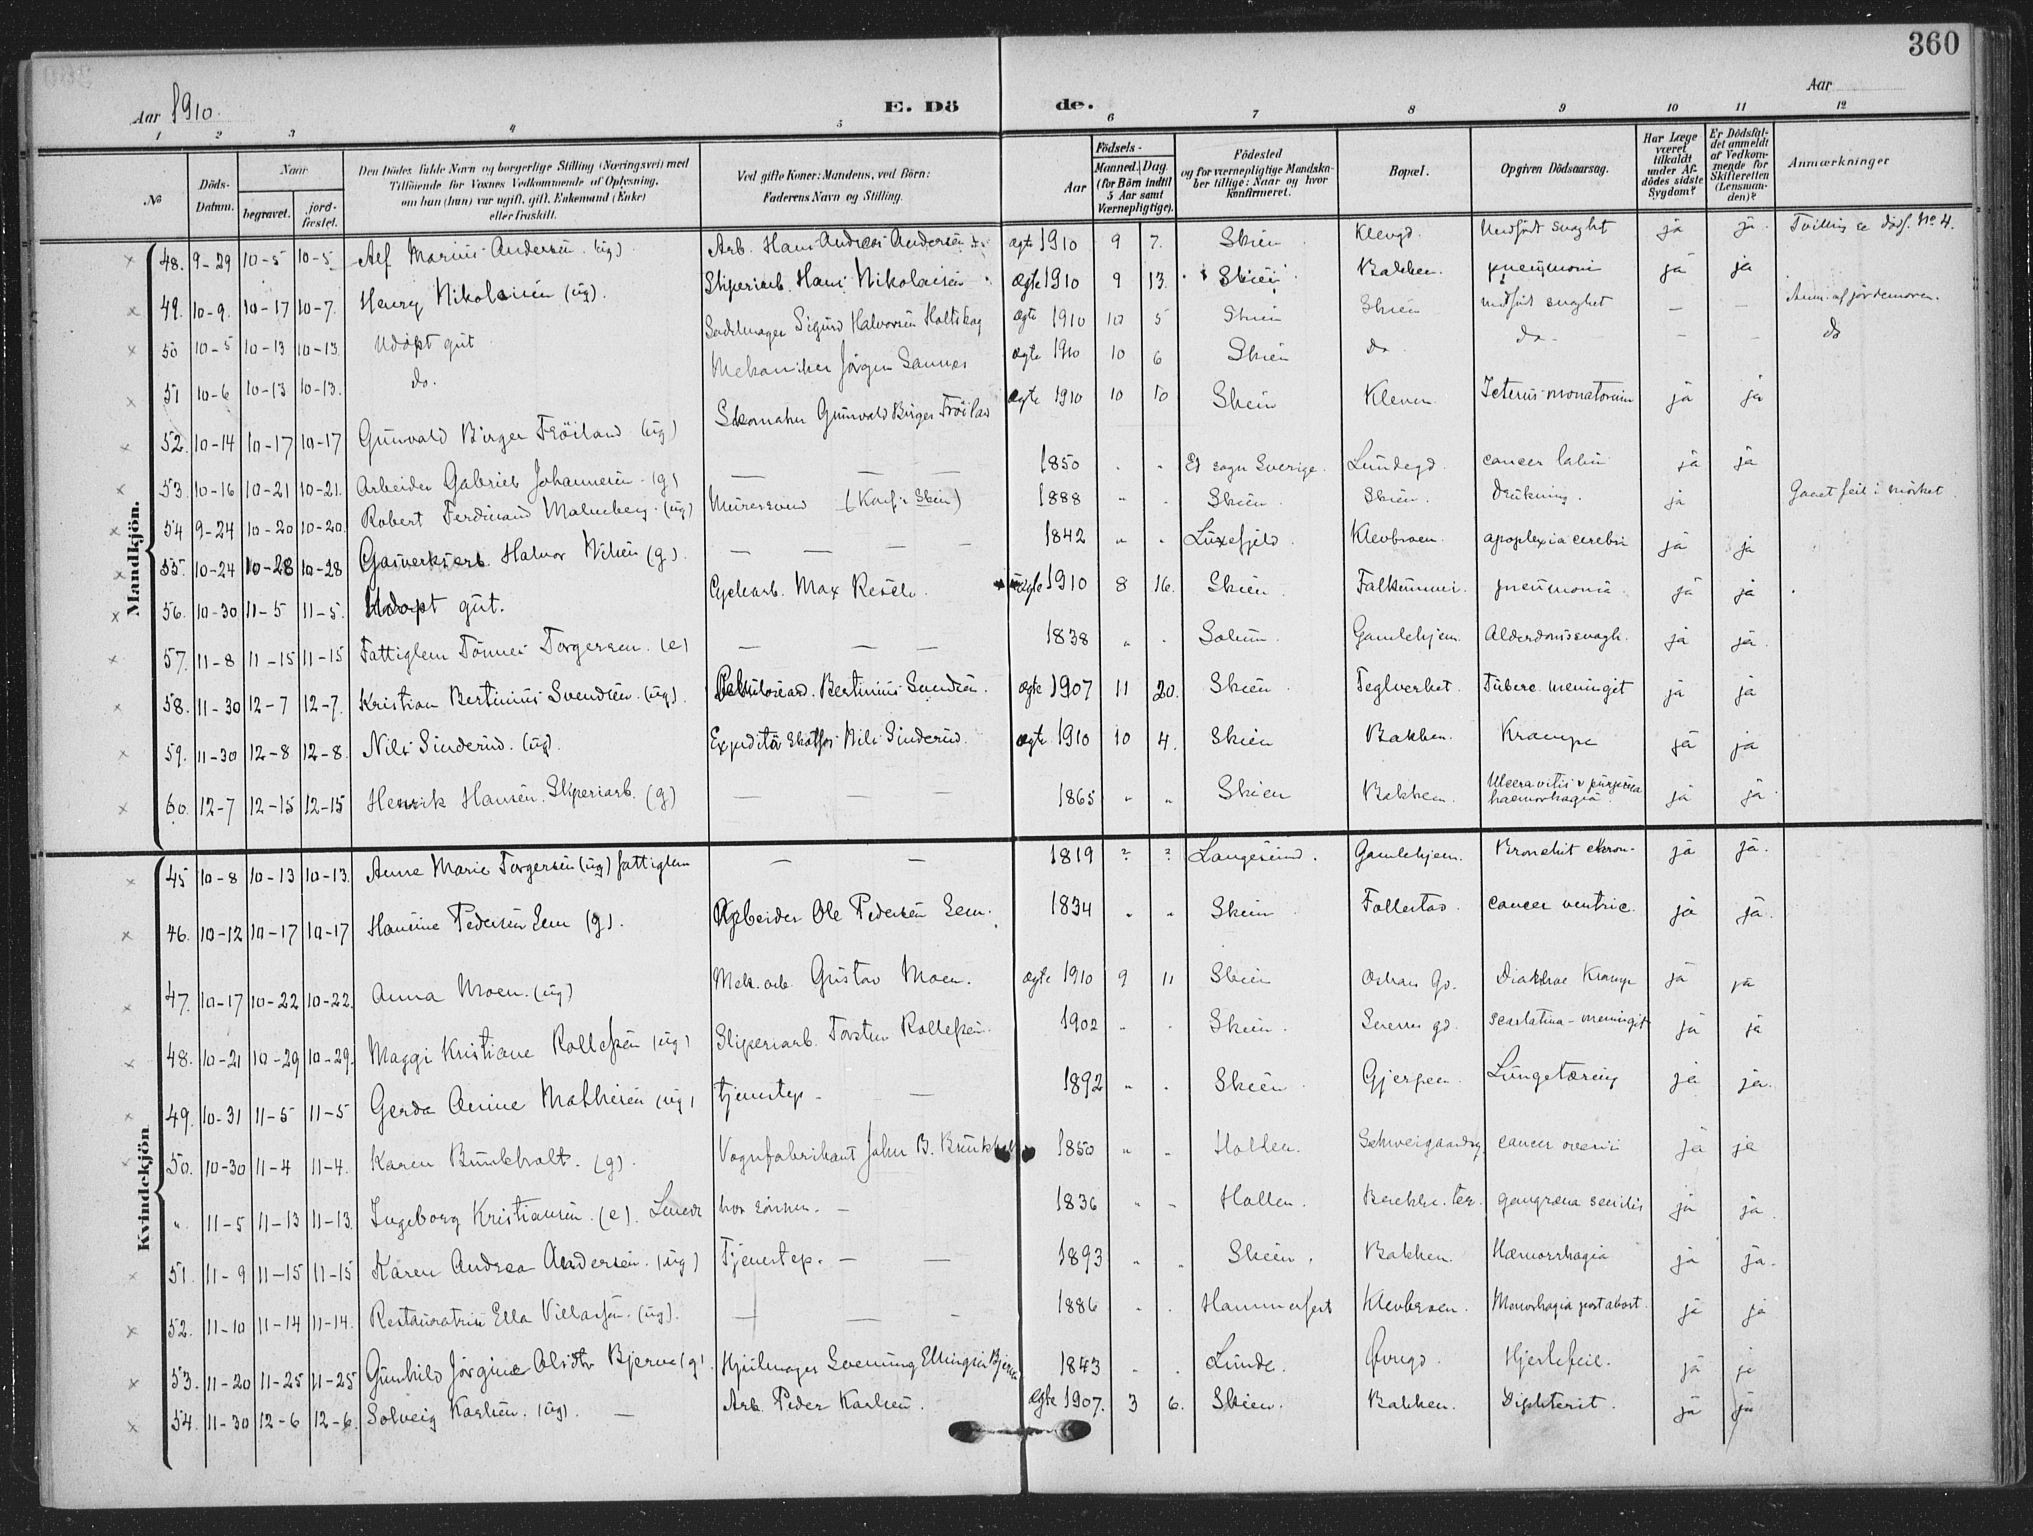 360
Aar 1910. E. Dö de. Aar
1 2 3 4 5 6 7 8 9 10 11 12
No
Döds-Datum.
Naar
begravet.
jord-fæstet.
Den Dödes fulde Navn og borgerlige Stilling (Næringsvei) med Tilföiende for Voxnes Vedkommende af Oplysning, om han (hun) var ugift, gift, Enkemand (Enke) eller fraskilt.
Ved gifte Koner: Mandens, ved Börn: Faderens Navn og Stilling.
Födsels-
Aar
Maaned. Dag
(for Börn indtil 5 Aar samt Værnepligtige).
Födested og for værnepligtige Mandska-ber tillige: Naar og hvor konfirmeret.
Bopæl.
Opgiven Dödsaarsag.
Har Læge været tilkaldt under Af-dödes sidste Sygdom?
Er Dödsfal-det anmeldt af Vedkom-mende for Skifteretten (Lensman-den)?
Anmærkninger
Mandkjön.
48. 9-29 10-5 10-5 Alf Marius Andersen (ug) Arb. Hans Andreas Andersen ægte 1910 9 7. Skien Klevgd. Medfödt svaghet ja ja. Tvilling se dödf. No 4.
49. 10-9. 10-17 10-7. Henry Nikolaisen (ug). Sliperiarb. Hans Nikolaisen ægte 1910 9 13. Skien Bakken. pneumoni ja ja
50 10-5 10-13 10-13 Udöpt gut Sadelmager Sigurd Halvorsen Holtskog ægte 1910 10 5 Skien Skien medfödt svaghet — — Anm. af jordemoren.
51 10-6 10-13 10-13. do. Mekaniker Jörgen Sannes ægte 1910 10 6 Skien do do - — — do
52. 10-14 10-17 10-17 Gunvald Birger Fröiland (ug) Skomaker Gunvald Birger Fröiland ægte 1910 10 10 Skien Kleven Icterus neonatorum ja ja
53. 10-16 10-21 10-21. Arbeider Gabriel Johannesen (g) — — — 1850 Ed sogn Sverige. Lundegd. cancer labii ja ja
54 9-24 10-20 10-20. Robert Ferdinand Malmberg (ug) Murersvend (Konf. i Skien) 1888 " " Skien. Skien. Drukning. ja Gaaet feil i mörket
55. 10-24 10-28 10-28 Gasverksarb. Halvor Nilsen (g). — — — — 1842 " " Luxefjeld. Klevbroen. apoplexia cerebri ja ja
56. 10-30 11-5 11-5. Udöpt gut. Cyclearb. Max uægte 1910 8 16. Skien. Falkummer. pneumonia ja ja
57. 11-8 11-15 11-15 Fattiglem Tönnes Torgersen. (e) — — — 1838 " Solum. Gamlehjem. Alderdomssvagh. ja ja.
58. 11-30 12-7 12-7. Kristian Bertinius Svendsen (ug). Bertinius Svendsen. ægte 1907 11 20. Skien. Teglverket. Tuberc. meningit ja ja
59. 11-30 12-8 12-8. Nils Sinderud. (ug). Expeditör Skotfos Nils Sinderud. ægte 1910 10 4. Skien Bakken. Krampe ja ja
60. 12-7 12-15 12-15 Henrik Hansen. Sliperiarb. (g) — — — 1865 " " Skien Bakken. purpura haemorrhagia. ja ja
Kvindekjön
45 10-8 10-13 10-13. Anne Marie Torgersen (ug) fattiglem — — 1819 ? ? Langesund. Gamlehjem. Bronchit chron- ja ja.
46. 10-12 10-17 10-17 Hansine Pedersen Sem (g). Arbeider Ole Pedersen Sem. 1834 " " Skien Follestad. cancer ventric. ja ja.
47. 10-17 10-22 10-22. Anna Moen. (ug) Mek. arb. Gustav Moen. ægte 1910 9 11 Skien gd. Diarrhoe Krampe ja ja
48. 10-21 10-29 10-29. Maggi Kristiane Rollefsen (ug) Sliperiarb. Torsten Rollefsen. 1902 " Skien. gd. scarlatina - meningit ja ja
49. 10-31 11-5 11-5 Gerda Amine Mathisen (ug) tjenestep. — 1892 " Skien. Gjerpen. Lungetæring ja ja.
50. 10-30 11-4 11-4. Karen Bunkholt. (g). Vognfabrikant John B. Bunkholt 1850 " Holden. Schweigaardsg. cancer ovarii ja ja
" 11-5 11-13 11-13. Ingeborg Kristiansen. (e). hos sönnen. — 1836 " Hollen. Bækk. ter. gangræna senilis ja ja.
51. 11-9 11-15 11-15 Karen Andrea Andersen. (ug) Tjenestep. — — 1893 " Skien. Bakken. Hæmorrhagia ja ja.
52. 11-10 11-14 11-14. Restauratrise Ella Villassen. (ug). — — — 1886 " Hammerfest Klevbroen. Menorhagia post abort. ja ja
53. 11-20 11-25 11-25 Gunhild Jörgine Bjerva (g). Hjulmager Svenning Ellingsen Bjerva 1843 Lunde. Övregd. Hjertefeil. ja ja
54. 11-30 12-6 12-6. Solveig Karlsen. (ug). — Arb. Peder Karlsen. ægte 1907. 3 6. Skien. Bakken. Diphterit. ja ja